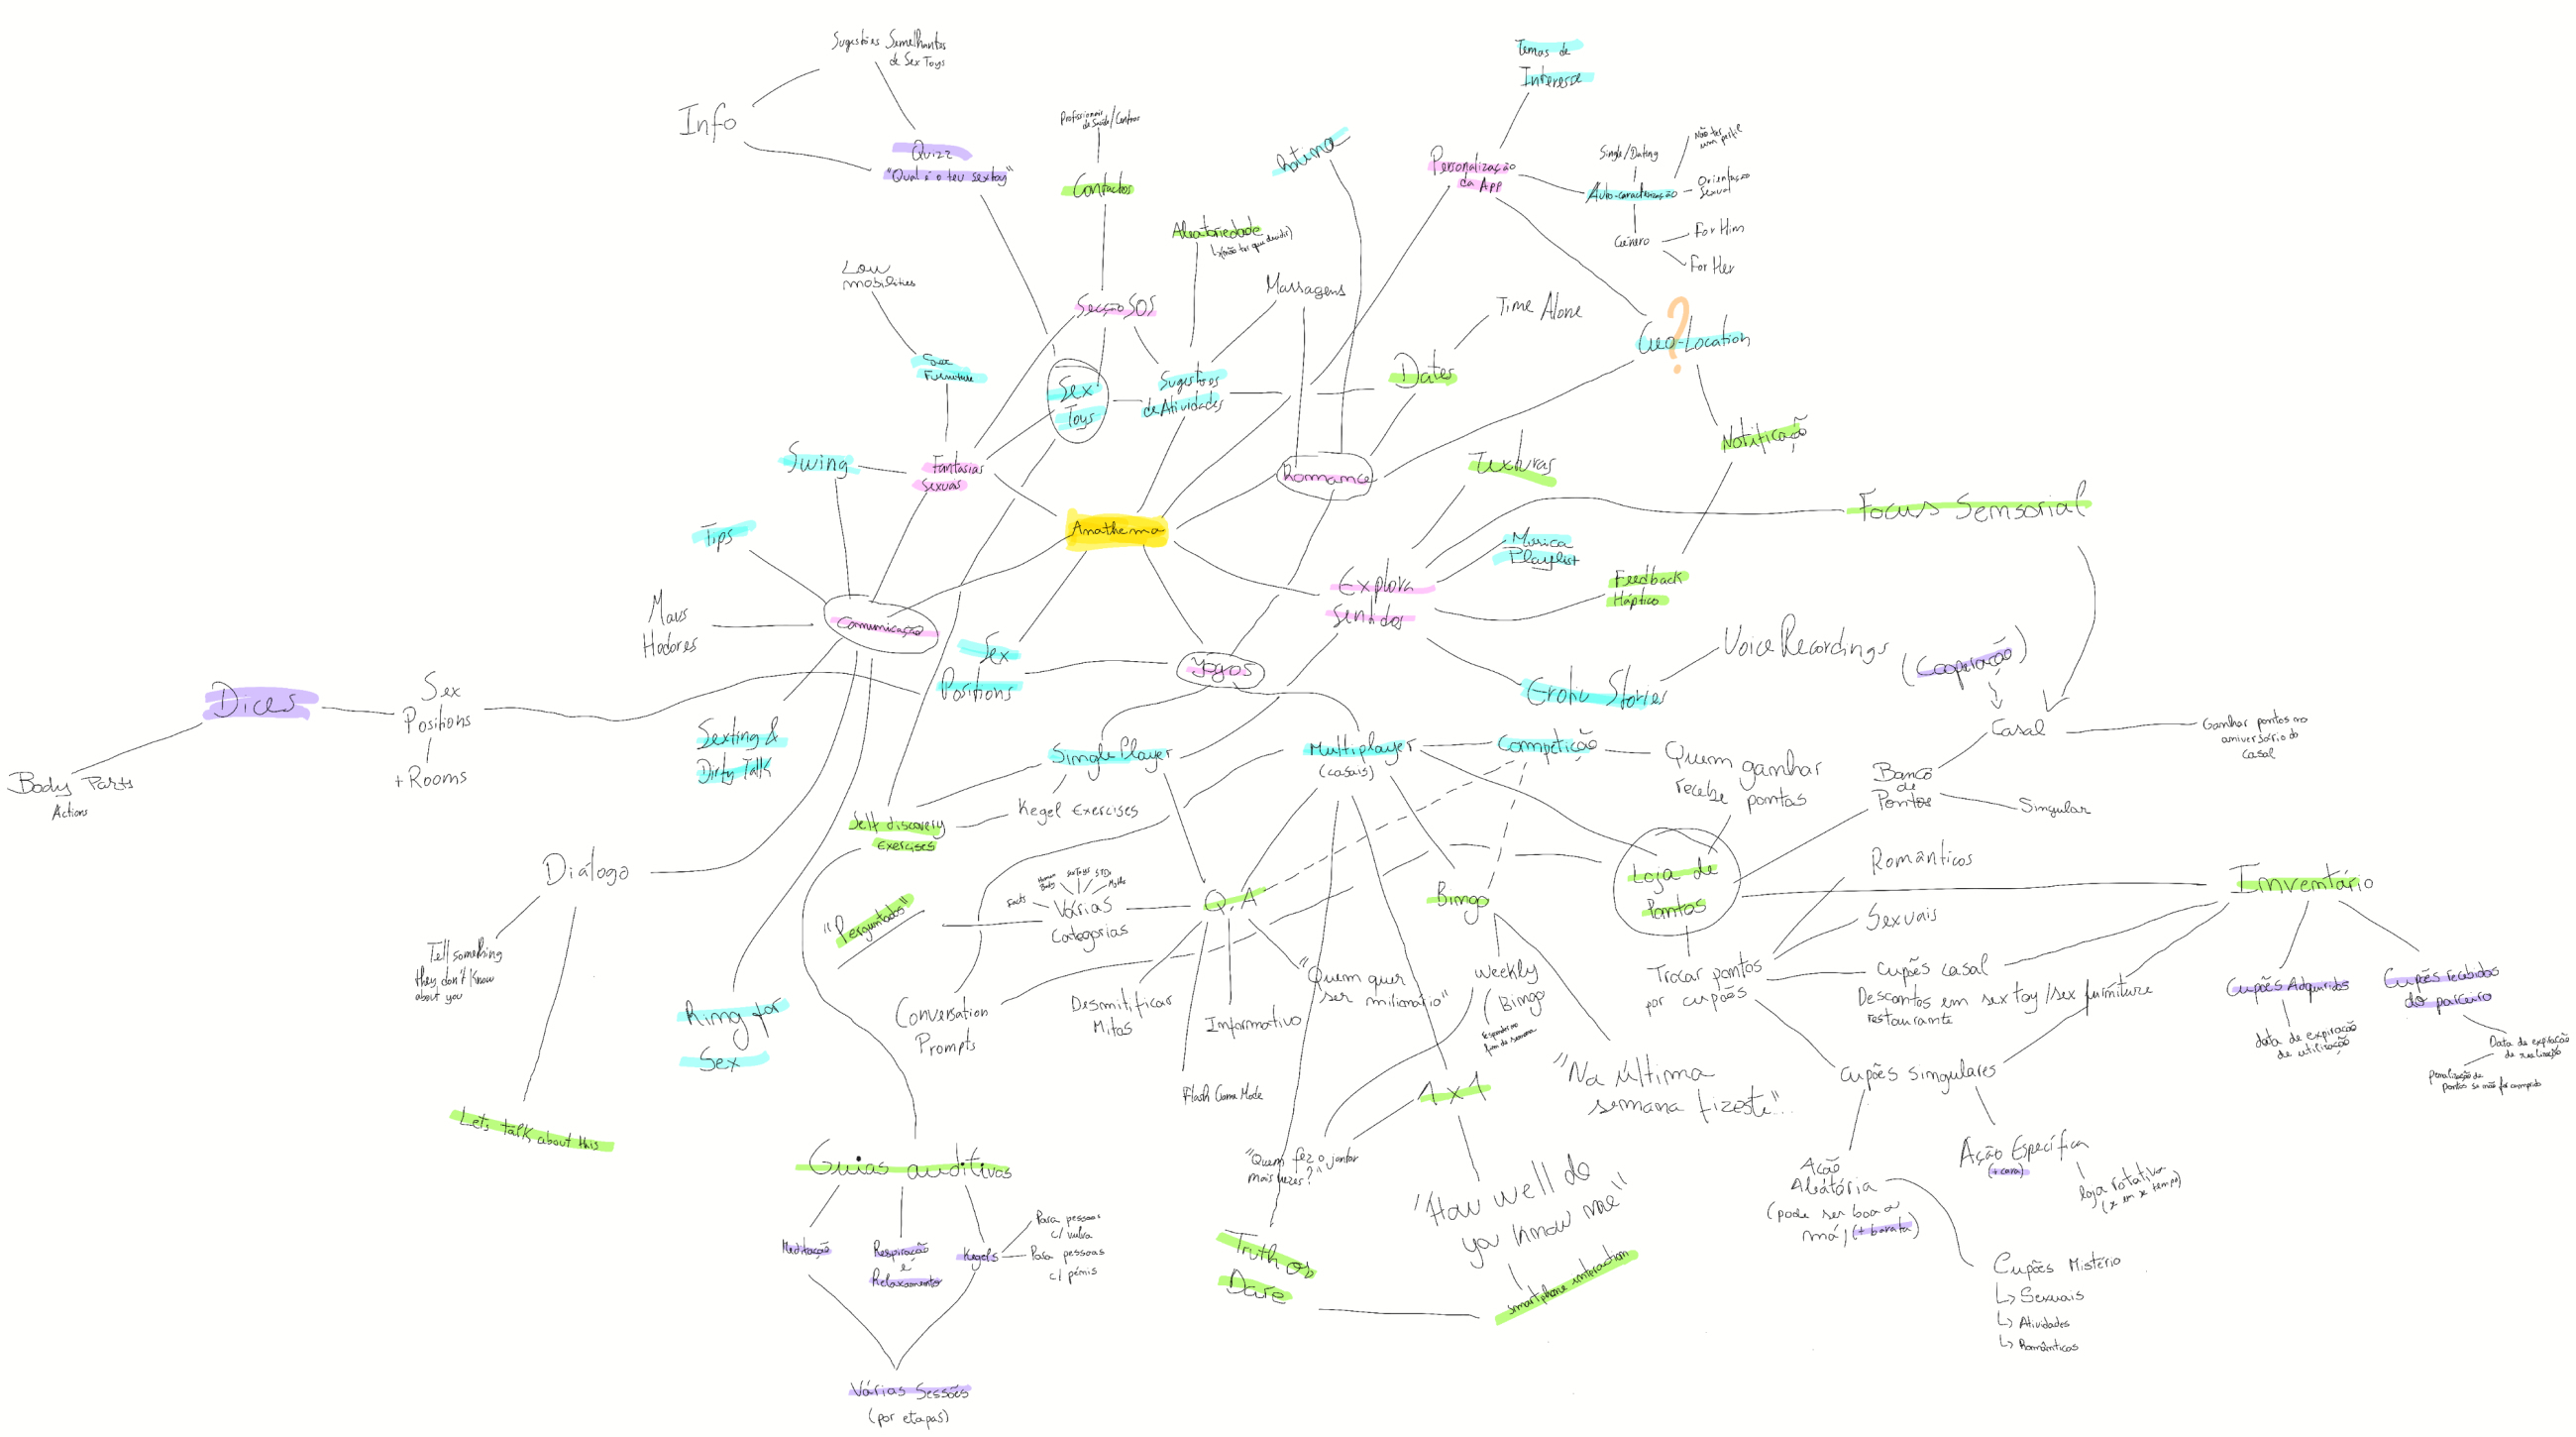 Sugestões Semelhantes
de Sex Toys
Info
Quizz
"Qual é o teu sextoy"
Profissionais
de Saúde/Centros
Contactos
Secção SOS
Aleatoriedade
↳(não ter que decidir)
Massagens
Rotina
Temas de
Interesse
Personalização
da App
Single/Dating
Não ter
um perfil
Auto-caracterização
Orientação
Sexual
Género
For Him
For Her
?
Geo-Location
Time Alone
Dates
Notificação
Low
mobilities
Sex
Furniture
Sex
Toys
Sugestões
de Atividades
Swing
Fantasias
Sexuais
Romance
Texturas
Focus Sensorial
Anathema
Tips
Musica
Playlist
Explora
Sentidos
Feedback
Háptico
Maus
Hodores
Comunicação
Sex
Positions
Jogos
Voice Recordings
Erotic Stories
(Cooperação)
Casal
Ganhar pontos no
aniversário do
casal
Dices
Sex
Positions
+ Rooms
Body Parts
Actions
Sexting &
Dirty Talk
Single Player
Multiplayer
(casais)
Competição
Quem ganhar
recebe pontos
Banco
de
Pontos
Singular
Kegel Exercises
Self discovery
Exercises
Diálogo
Tell something
they don't know
about you
Lets talk about this
Ring for
Sex
"Perguntados"
Facts
Human
Body
Sex Toys
STDs
Myths
Várias
Categorias
Q.A
Bingo
Loja de
Pontos
Românticos
Sexuais
Inventário
Conversation
Prompts
Desmitificar
Mitos
Informativo
"Quem quer
ser milionário"
Flash Game Mode
Weekly
Bingo
fim de semana
"Na última
semana fizeste"...
Trocar pontos
por cupões
Cupões casal
Descontos em sex toy/sex furniture
restaurante
Cupões Adquiridos
data de expiração
de utilização
Cupões recebidos
do parceiro
Data de expiração
de realização
Penalização de
pontos se não for cumprido
Cupões Singulares
1x1
"Quem fez o jantar
mais vezes?"
"How well do
you know me"
Smartphone interaction
Truth or
Dare
Ação
Aleátória
(pode ser boa o
má) (+ barata)
Ação Específica
(+ cara)
loja rotativa
(x em x tempo)
Cupões Mistério
↳ Sexuais
↳ Atividades
↳ Românticos
Guias auditivos
Meditação
Respiração
e
Relaxamento
Kegels
Para pessoas
c/ vulva
Para pessoas
c/ pénis
Várias Sessões
(por etapas)